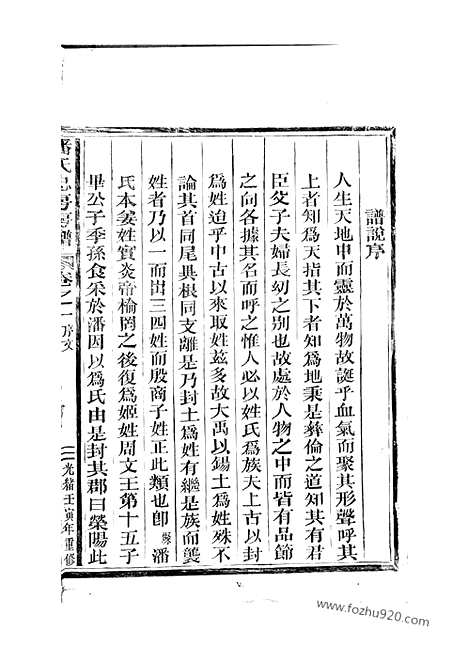 譜說序
人生天地中而靈於萬物故誕乎血氣而聚其形聲呼其
上者知爲天指其下者知爲地秉是彝倫之道知其有君
臣父子夫婦長幼之別也故處於人物之中而皆有品節
之向各據其名而呼之惟人必以姓氏爲族夫上古以封
爲姓迨乎中古以來取姓茲多故大禹以錫土爲姓殊不
論其首同尾異根同支離是乃封土爲姓有繼是族而襲
姓者乃以一而出三四姓而殷商子姓正此類也卽 潘
氏本姜姓實炎帝榆罔之後復爲姬姓周文王第十五子
畢公子季孫食采於潘因以爲氏由是封其郡曰滎陽此
潘氏忠房房譜 卷之一 序文 光緒壬寅年重修
www.fozhu920.com